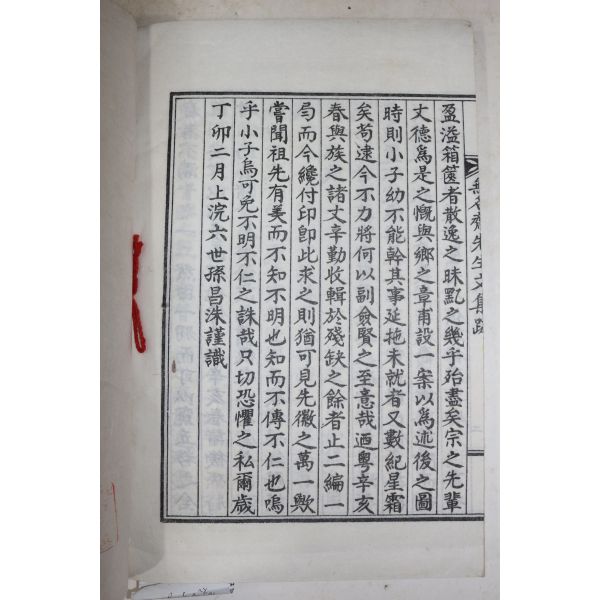 盈溢箱篋者散逸之昧㸃之幾乎殆盡矣宗之先輩
丈德爲是之慨與鄉之章甫設一案以爲述後之圖
時則小子幼不能幹其事延拖未就者又數紀星霜
矣苟逮今不力將何以副僉賢之至意哉迺粤辛亥
春與族之諸丈辛勤收輯於殘缺之餘者止二編一
弓而今纔付印卽此求之則猶可見先徽之萬一歟
嘗聞祖先有美而不知不明也知而不傳不仁也嗚
乎小子烏可免不明不仁之誅哉只切恐懼之私爾歲
丁卯二月上浣六世孫昌洙謹識
齋先生文集跋